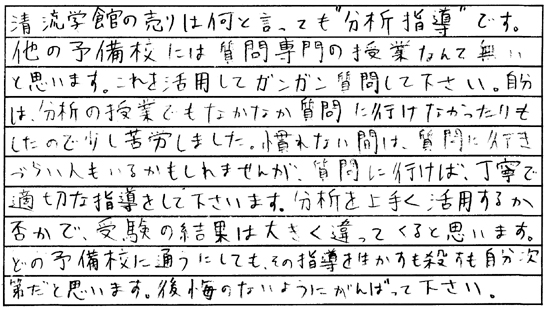 清流学館の売りは何と言っても"分析指導"です。
他の予備校には質問専門の授業なんて無い
と思います。これを活用してガンガン質問して下さい。自分
は、分析の授業でもなかなか質問に行けなかったりも
したので少し苦労しました。慣れない間は、質問に行き
づらい人もいるかもしれませんが、質問に行けば、丁寧で
適切な指導をして下さいます。分析を上手く活用するか
否かで、受験の結果は大きく違ってくると思います。
どの予備校に通うにしても、その指導を生かすも殺すも自分次
第だと思います。後悔のないようにがんばって下さい。